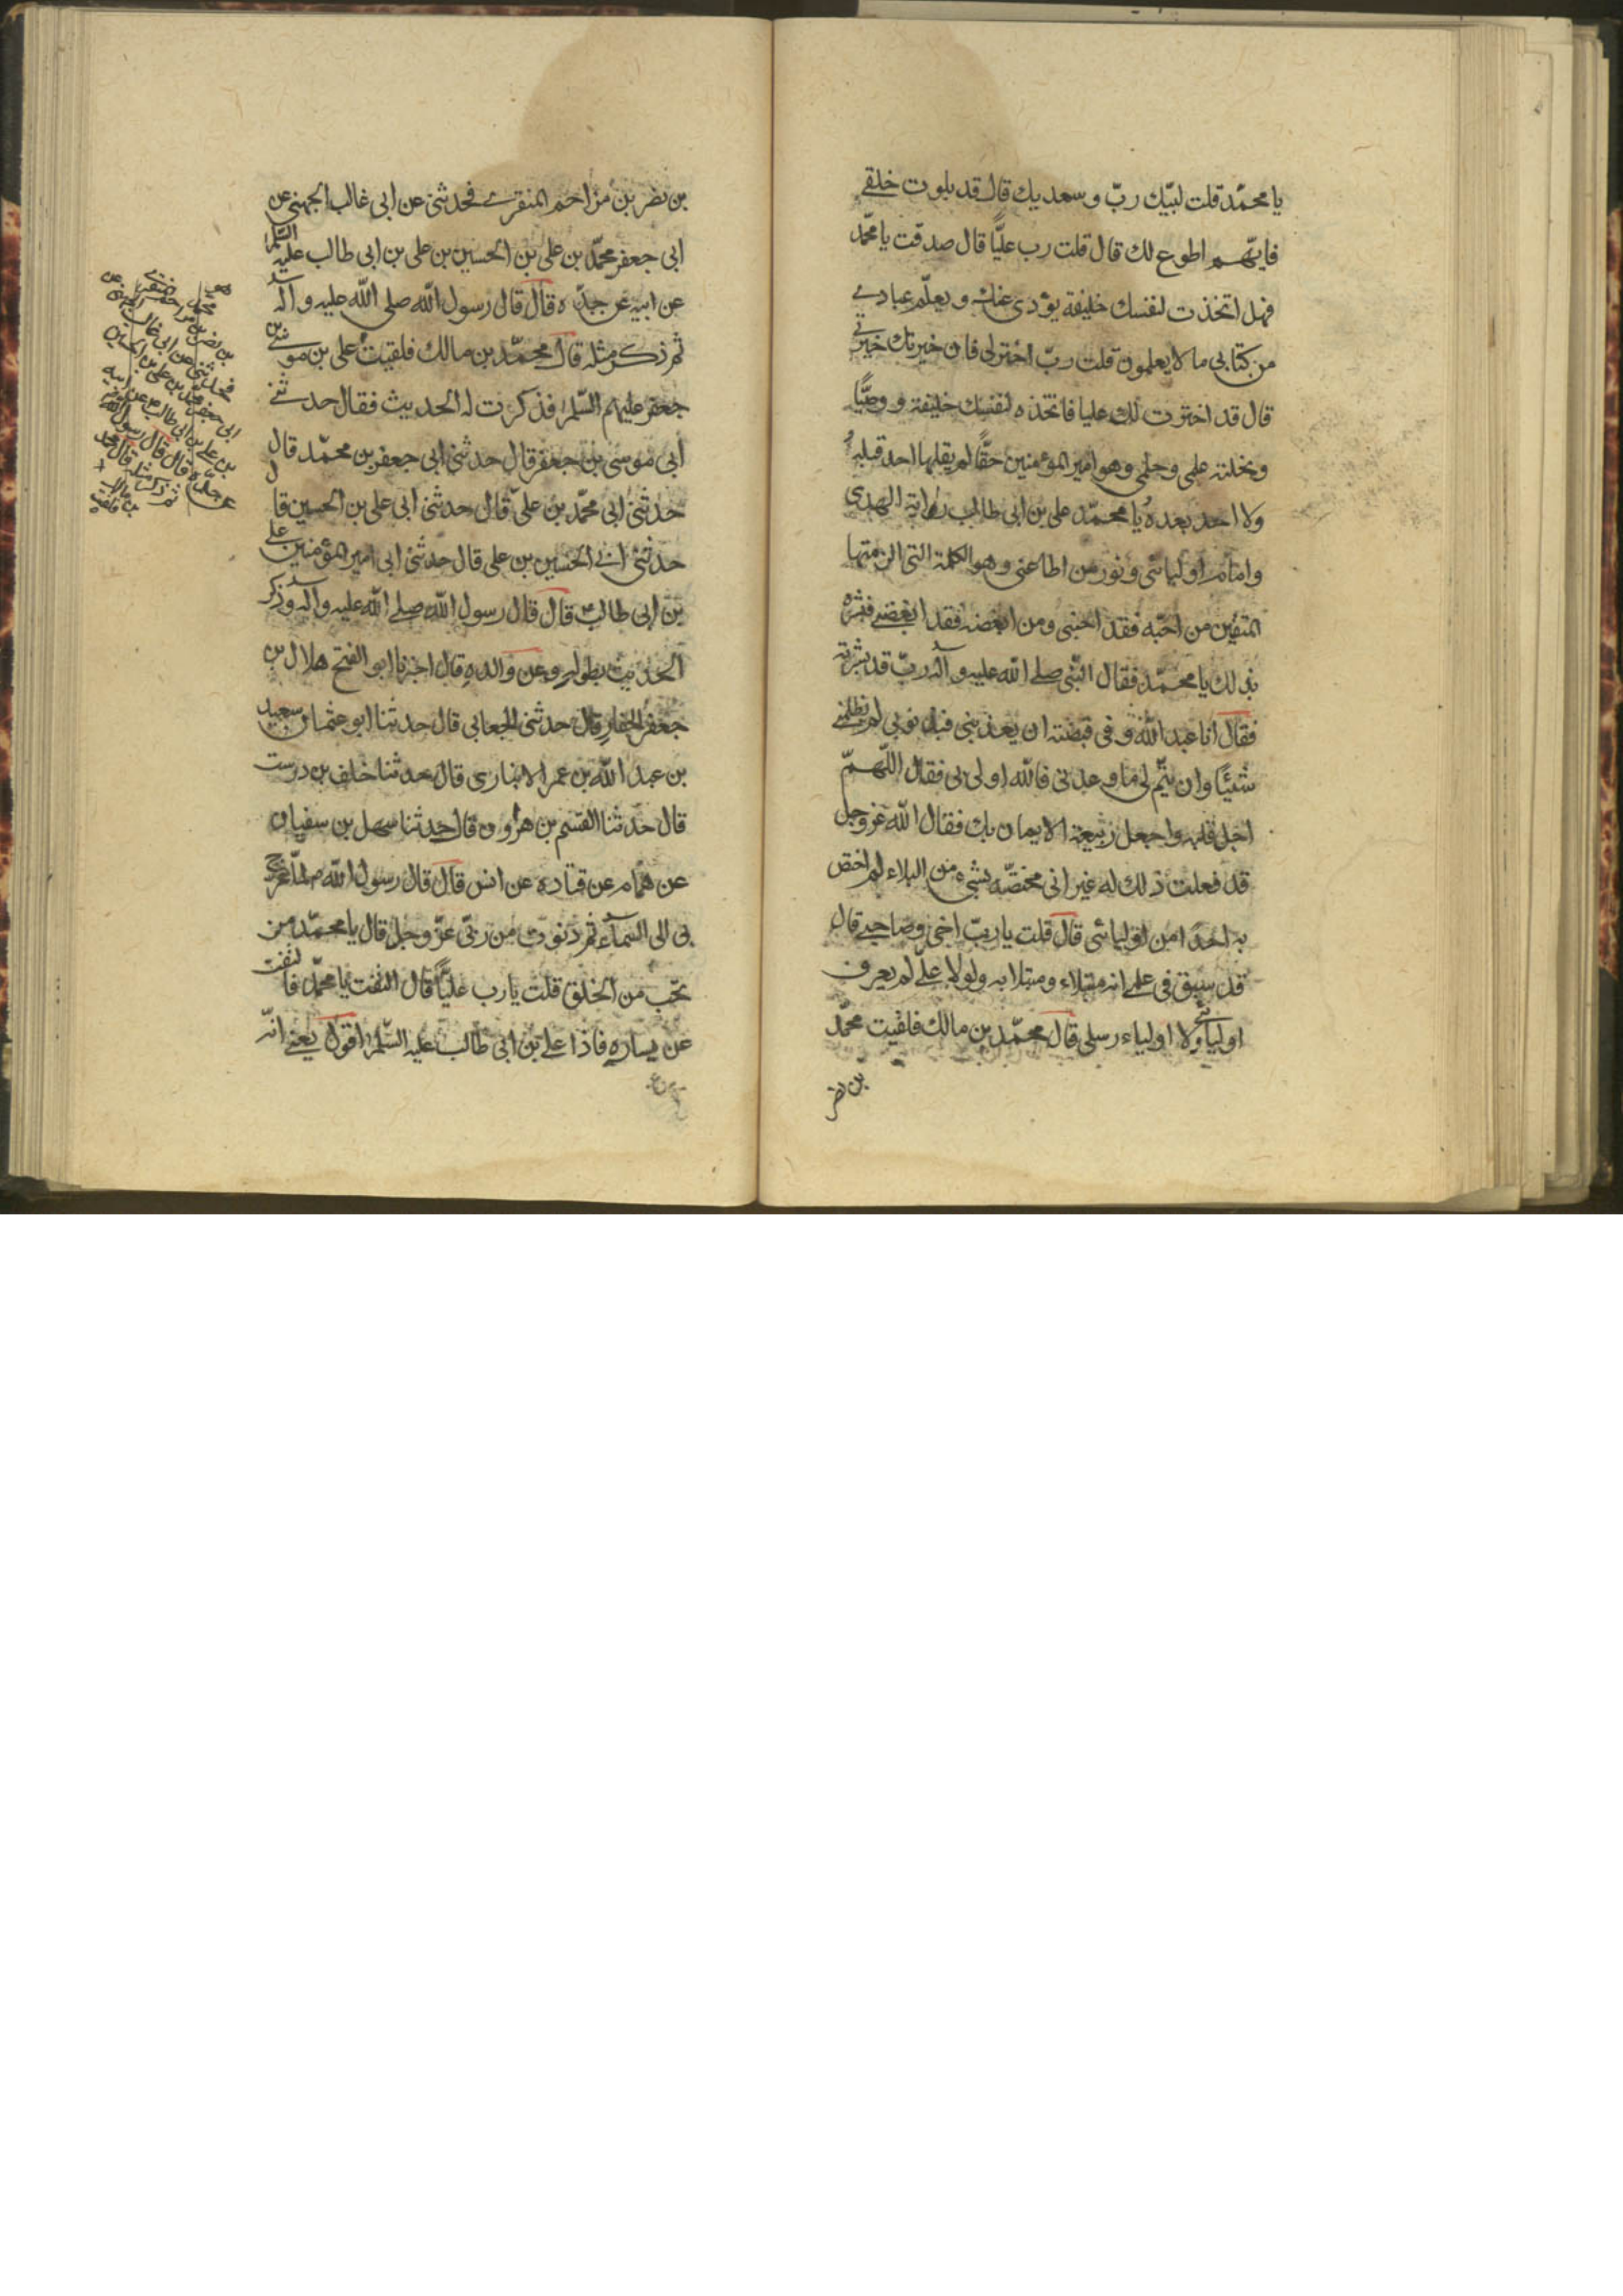 يا محمّد قلت لبّيك ربّ وسعديك قال قد بلوت خلقي
فايّهم اطوع لك قال قلت رب عليًّا قال صدقت يا محمّد
فهل اتخذت لنفسك خليفة يؤدى عنك ويعلّم عبادي
من كتابى ما لا يعلمون قلت ربّ اختر لى فان خيرتك خيرتى
قال قد اخترت لك عليا فاتخذه لنفسك خليفة ووصيًّا
ونحلته علمى وحلمى وهو امير المؤمنين حقًّا لم يقلها احد قبله
ولا احد بعده يا محمّد على بن ابى طالب راية الهدى
وامام اوليائى ونور من اطاعنى وهو الكلمة التى الزمتها
المتقين من احبّه فقد احبنى ومن ابغضه فقد ابغضنى فبشره
بذلك يا محمّد فقال النّبى صلى الله عليه وآله ربّ قد بشرته
فقال انا عبد الله وفى قبضته ان يعذبنى فبذنوبى لم يظلمنى
شيئًا وان يتم لى ما وعدنى فالله اولى بى فقال اللّهمّ
اجل قلبه واجعل ربيعه الايمان بك فقال الله عز وجل
قد فعلت ذلك له غير انى مختصّه بشىء من البلاء لم اختص
به احدا من اوليائى قال قلت يا ربّ اخى وصاحبى قال
قد سبق فى علمى انه مبتلاء ومبتلا به ولولا علىّ لم يعرف
اوليائى ولا اولياء رسلى قال محمّد بن مالك فلقيت محمّد
بن نصر
بن نصر بن مزاحم المنقري فحدثنى عن ابى غالب الجهنى عن
ابى جعفر محمّد بن على بن الحسين بن على بن ابى طالب عليه السّلم
عن ابيه عن جدّه قال قال رسول الله صلى الله عليه وآله
ثم ذكر مثله قال محمّد بن مالك فلقيت على بن موسى بن
جعفر عليهم السّلم فذكرت له الحديث فقال حدثنى
أبى موسى بن جعفر قال حدثنى ابى جعفر بن محمّد قال
حدثنى ابى محمّد بن علىّ قال حدثنى ابى على بن الحسين قال
حدثنى ابى الحسين بن على قال حدثنى ابى امير المؤمنين على
بن ابى طالب قال قال رسول الله صلى الله عليه وآله وذكر
الحديث بطوله وعن والده قال اخبرنا ابو الفتح هلال بن
جعفر الحفار قال حدثنى الجعابى قال حدثنا ابو عثمان سعيد
بن عبد الله بن عمر الانبارى قال حدثنا خلف بن درست
قال حدثنا القسم بن هرون قال حدثنا سهل بن سفيان
عن همام عن قتادة عن انس قال قال رسول الله ص لمّا عرج
بى الى السمآء ثم دنوت من ربّى عزّ وجل قال يا محمّد من
تحّب من الخلق قلت يا رب عليًّا قال التفت يا محمّد فالتفت
عن يساره فاذا على بن ابى طالب عليه السّلم اقول يعنى انّه
محمد
بن نصر بن مزاحم المنقري
فحدثنى عن ابى غالب الجهنى عن
ابى جعفر محمد بن على بن الحسين
بن على بن ابى طالب عن ابيه
عن جده قال قال رسول الله
ثم ذكر مثله قال محمد
بن مالك فلقيت